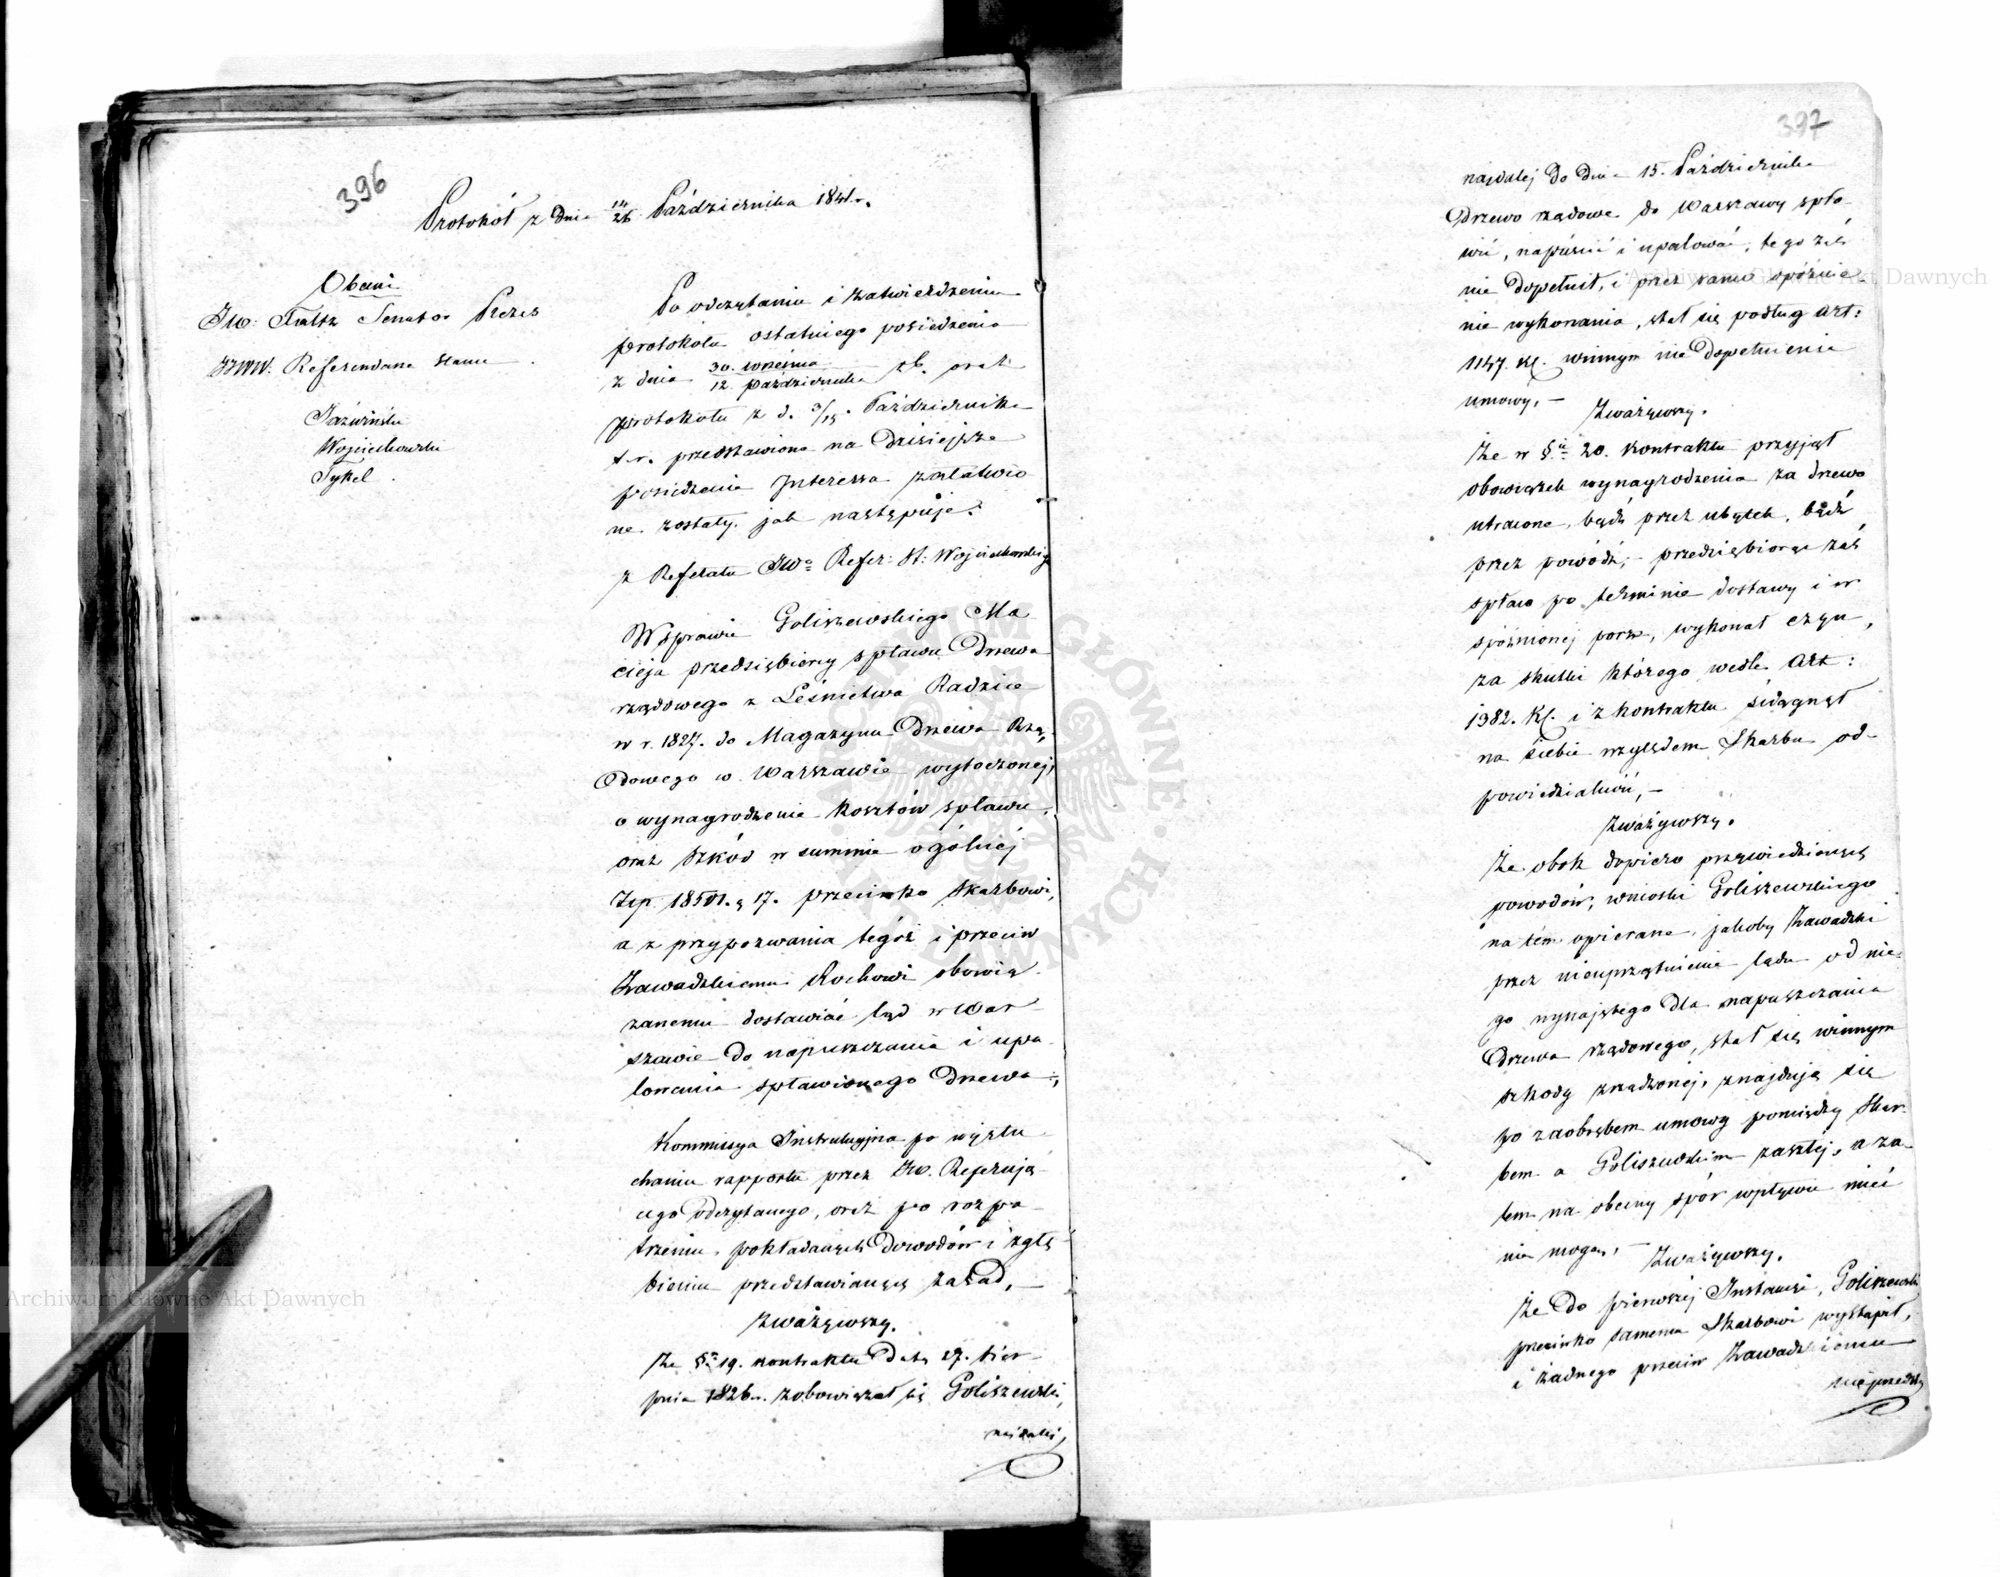 396
Protokół z dnia 14/26 Października 1841 r.
Obecni
JW: Faltz Senator Prezes
JJWW. Referendarze Stanu
Jaźwiński
Wojciechowski
Tykel
Po odczytaniu i zatwierdzeniu
protokołu ostatniego posiedzenia
z dnia 30. września / 12. października rb. oraz
protokołu z d. 3/15. Października
t. r. przedstawione na dzisiejsze
posiedzenie Interessa załatwio
ne zostały. jak następuje:
z Referatu JWo Refer: St: Wojciechowskiego
W sprawie Goliszewskiego Ma
cieja przedsiębiercy spławu Drzewa
rządowego z Leśnictwa Radzice
w r. 1827. do Magazynu Drzewa Rzą,
dowego w Warszawie wytoczonej,
o wynagrodzenie kosztów spławu,
oraz szkód w summie ogólnéj
Złp. 18501. g 17. przeciwko Skarbowi,
a z przypozwania tegóż i przeciw
Zawadzkiemu Rochowi obowią
zanemu dostawiać ląd w War
szawie do napuszczania i upa
lowania spławionego Drzewa,
Kommissya Instrukcyjna po wysłu
chaniu rapportu przez JW. Referują
cego odczytanego, oraz po rozpa
trzeniu pokładanych Dowodów i zgłę
bieniu przedstawianych zasad,—
Zważywszy.
Że § 19. kontraktu Dato 27. Sier-
pnia 1826 r. zobowiązał się Goliszewski,
najdalej
397
najdalej do dnia 15. Października
Drzewo rządowe do Warszawy spła-
wić, napuścić i upalować, tego zaś
nie dopełnił, i przez samo spóźnie
nie wykonania, stał się podług art:
1147. KC. winnym niedopełnienia
umowy,—
Zważywszy.
Że w § 20. kontraktu przyjął
obowiązek wynagrodzenia za drzewo
utracone, bądź przez ubytek, bądź
przez powódź;— przedsiębiorąc zaś
spław po terminie dostawy i w
spóźnionej porze, wykonał czyn,
za skutki którego wedle Art:
1382. KC. i z kontraktu ściągnął
na siebie względem Skarbu od-
powiedzialność,—
Zważywszy.
Że obok dopiero przywiedzionych
powodów, wnioski Goliszewskiego
na tém opierane, jakoby Zawadzki
przez nieuprzątnienie lądu od nie-
go wynajętego dla napuszczania
Drzewa rządowego, stał się winnym
szkody zrządzonej, znajdują się
po za obrębem umowy pomiędzy Skar
bem a Goliszewskim zaszłej, a za-
tem na obecny spór wpływu mieć
nie mogą,—
Zważywszy.
Że do pierwszej Instancyi, Goliszewski
przeciwko samemu Skarbowi wystąpił,
i żadnego przeciw Zawadzkiemu